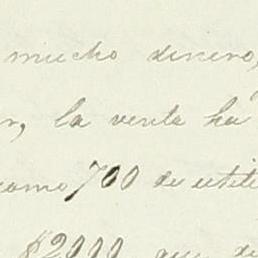 mucho dinero,
la venta ha
como 700 de utili
$2000 que de